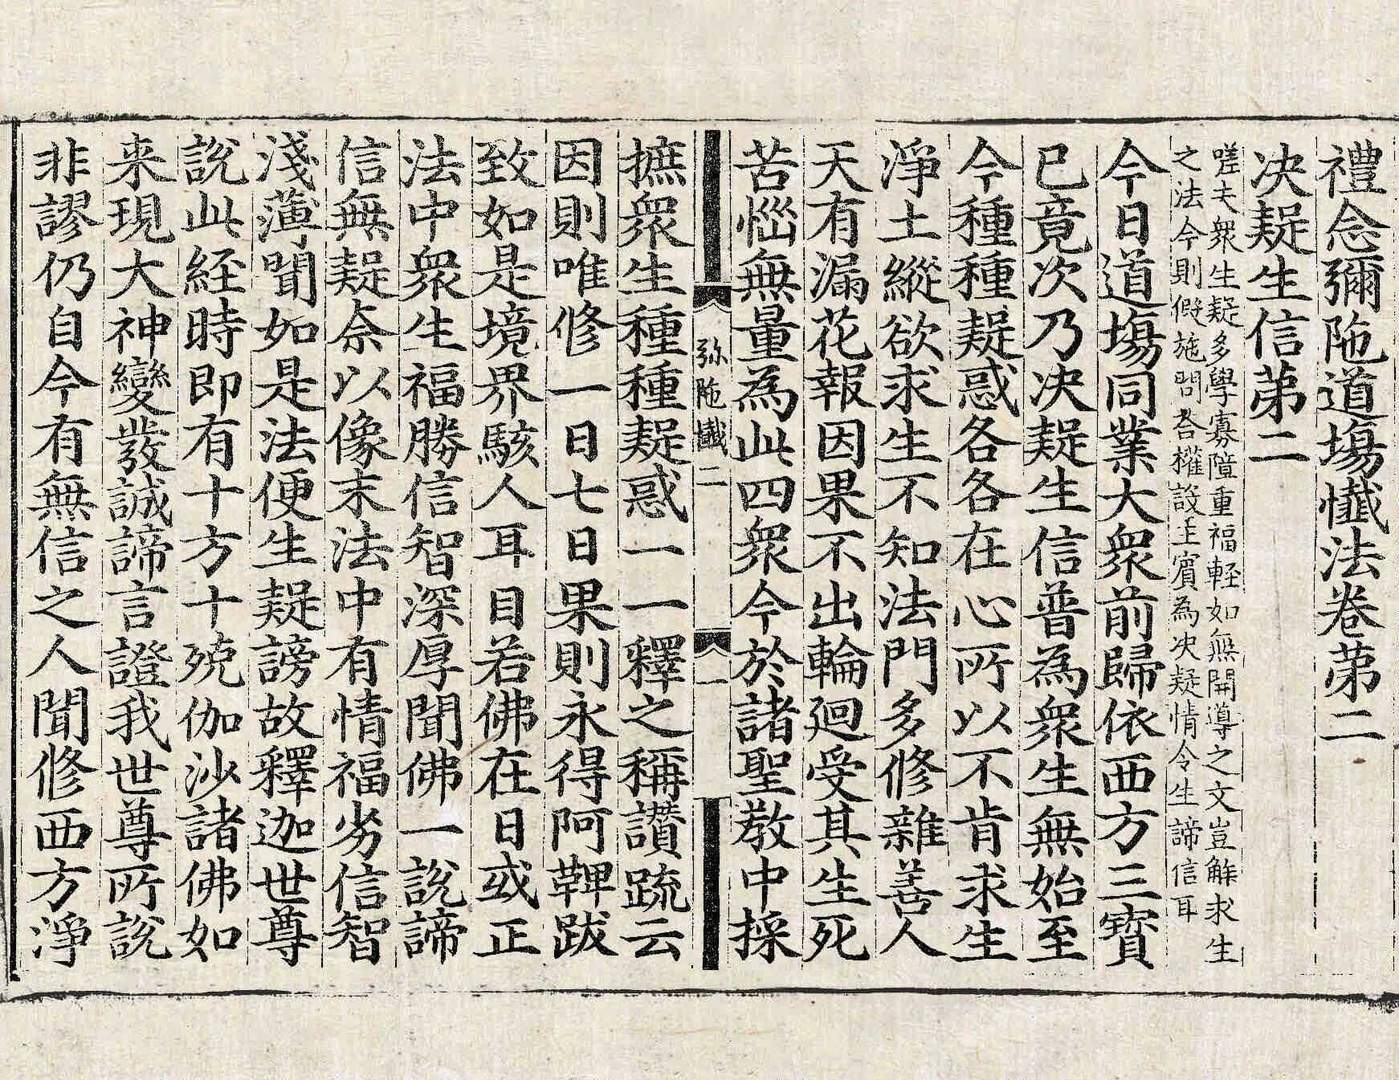 禮念彌陁道場懺法卷苐二
决疑生信苐二
嗟夫衆生疑多學寡障重福輕如無開導之文豈觧求生
之法今則假施問荅權設主賔為决疑情令生諦信耳
今日道場同業大衆前歸依西方三寳
已竟次乃决疑生信普為衆生無始至
今種種疑惑各各在心所以不肯求生
淨土縱欲求生不知法門多修雜善人
天有漏花報因果不出輪廻受其生死
苦惱無量為此四衆今於諸聖教中採
弥陁懺二
一
摭衆生種種疑惑一一釋之稱讃疏云
因則唯修一日七日果則永得阿鞞跋
致如是境界駭人耳目若佛在日或正
法中衆生福勝信智深厚聞佛一說諦
信無疑奈以像末法中有情福劣信智
淺薄聞如是法便生疑謗故釋迦世尊
說此經時即有十方十殑伽沙諸佛如
来現大神變發誠諦言證我世尊所說
非謬仍自今有無信之人聞修西方淨